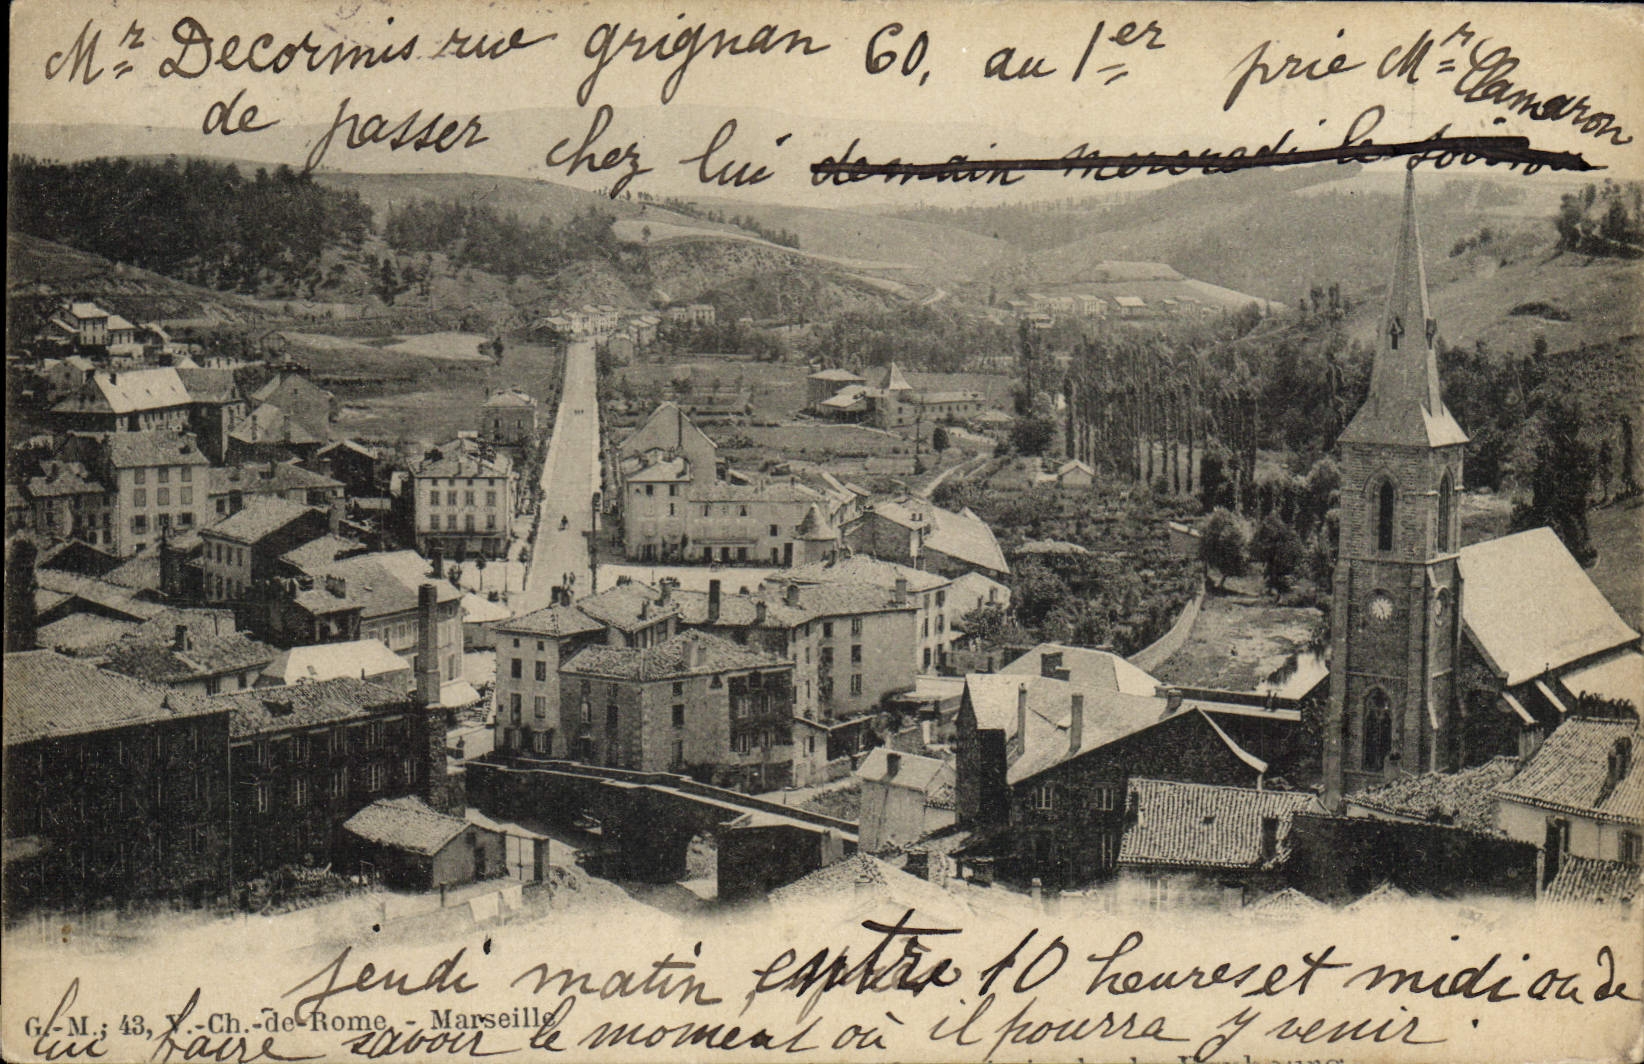 Mr Decormis rue grignan 60, au 1er prie Mr Clamaron
de passer chez lui demain mercredi le soir ou
jeudi matin entre 10 heures et midi ou de
lui faire savoir le moment où il pourra y venir.
G.-M.; 43, V.-Ch.-de-Rome. - Marseille